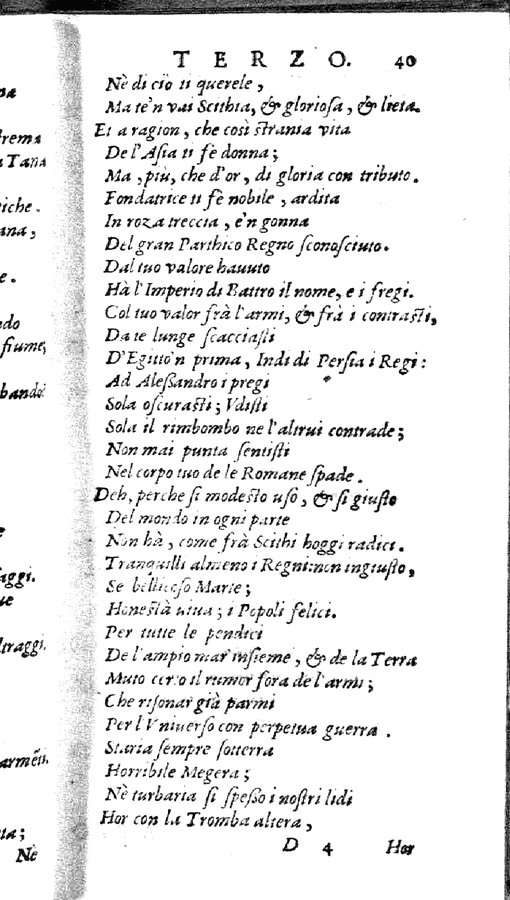 TERZO. 40
Nè di ciò ti querele,
Ma te'n vai Scithia, & gloriosa, & lieta.
Et a ragion, che così strania vita
De l'Asia ti fè donna;
Ma, più, che d'or, di gloria con tributo.
Fondatrice ti fè nobile, ardita
In roza treccia, e'n gonna
Del gran Parthico Regno sconosciuto.
Dal tuo valore hauuto
Hà l'Imperio di Battro il nome, e i fregi.
Col tuo valor frà l'armi, & frà i contrasti,
Da te lunge scacciasti
D'Egitto'n prima, Indi di Persia i Regi:
Ad Alessandro i pregi
Sola oscurasti; Vdisti
Sola il rimbombo ne l'altrui contrade;
Non mai punta sentisti
Nel corpo tuo de le Romane spade.
Deh, perche si modesto uso, & si giusto
Del mondo in ogni parte
Non hà, come frà Scithi hoggi radici.
Tranquilli almeno i Regni: non ingiusto,
Se bellicoso Marte;
Honestà uiua; i Popoli felici.
Per tutte le pendici
De l'ampio mar insieme, & de la Terra
Muto certo il rumor fora de l'armi;
Che risonar già parmi
Per l'Vniuerso con perpetua guerra.
Staria sempre sotterra
Horribile Megera;
Nè turbaria si spesso i nostri lidi
Hor con la Tromba altera,
D 4 Hor
na
trema
Tana
iche.
ana,
e.
ndo
fiume,
bando:
e
aggi.
ue
ltraggi.
ta;
Nè